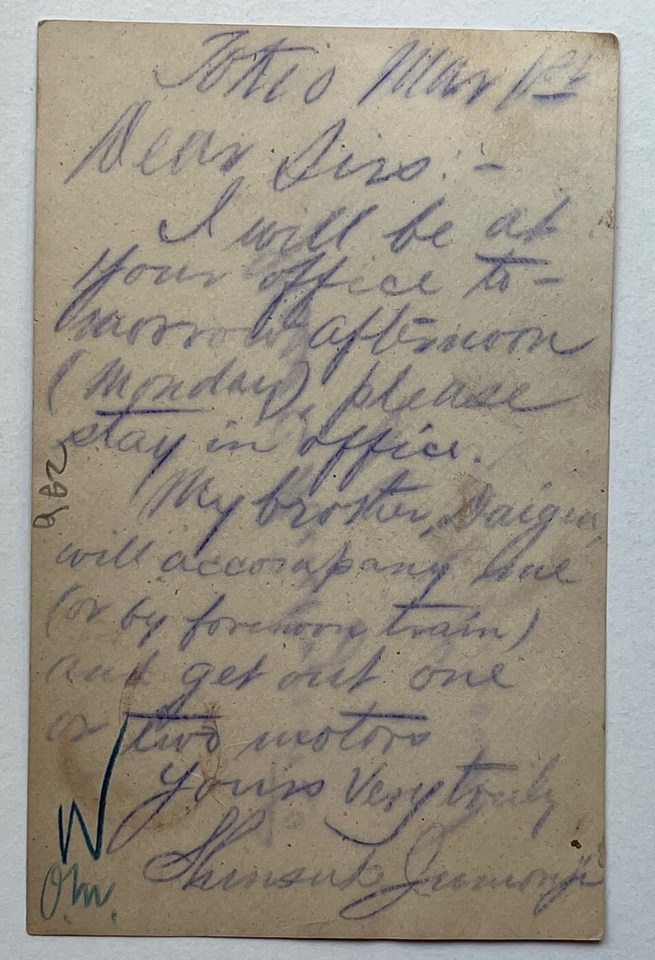 Tokio Mar 1st
Dear Sirs:-
I will be at
your office to-
morrow afternoon
(Monday), please
stay in office.
My brother, Daigen,
will accompany me
(or by forenoon train)
and get out one
or two motors
Yours Very truly
Shinsuke Jumonji
O.W.